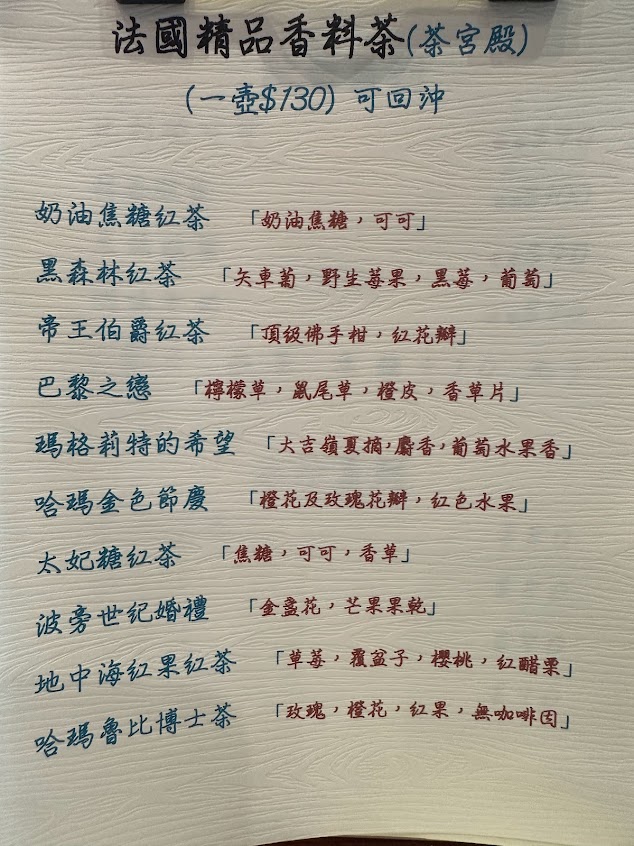 法國精品香料茶(茶宮殿)
(一壺$130) 可回沖
奶油焦糖紅茶 「奶油焦糖,可可」
黑森林紅茶 「矢車菊,野生莓果,黑莓,葡萄」
帝王伯爵紅茶 「頂級佛手柑,紅花瓣」
巴黎之戀 「檸檬草,鼠尾草,橙皮,香草片」
瑪格莉特的希望 「大吉嶺夏摘,麝香,葡萄水果香」
哈瑪金色節慶 「橙花及玫瑰花瓣,紅色水果」
太妃糖紅茶 「焦糖,可可,香草」
波旁世紀婚禮 「金盞花,芒果果乾」
地中海紅果紅茶 「草莓,覆盆子,櫻桃,紅醋栗」
哈瑪魯比博士茶 「玫瑰,橙花,紅果,無咖啡因」